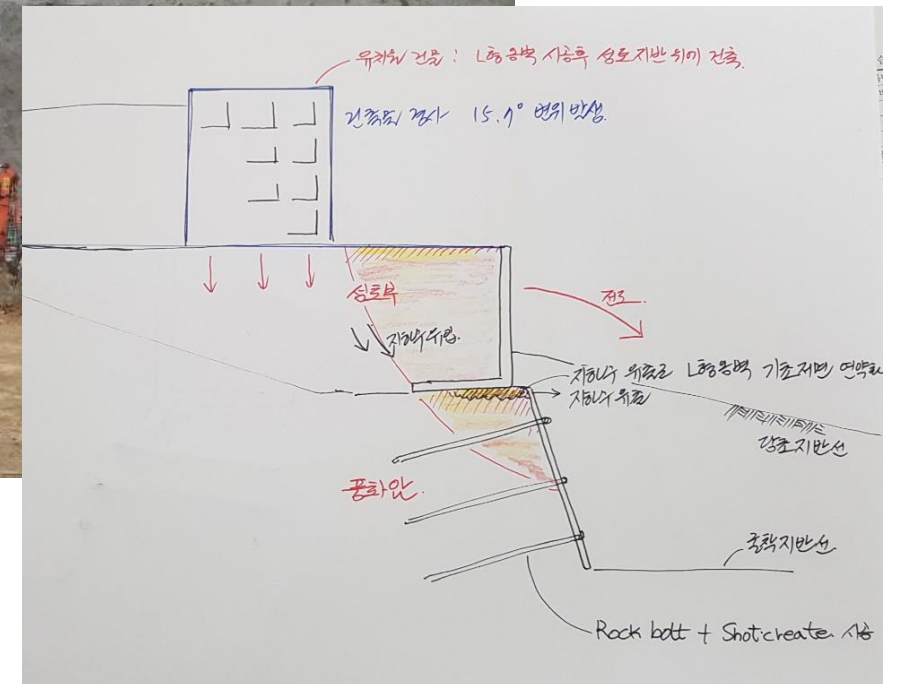 유치원 건물 : L형옹벽 시공후 성토지반 위에 건축.
건축물 경사 15.7° 변위 발생.
성토부
지하수 유입.
전도.
지하수 유출로 L형옹벽 기초저면 연약화
지하수 유출
당초지반선
풍화암.
굴착지반선
Rock bolt + Shotcreate 시공